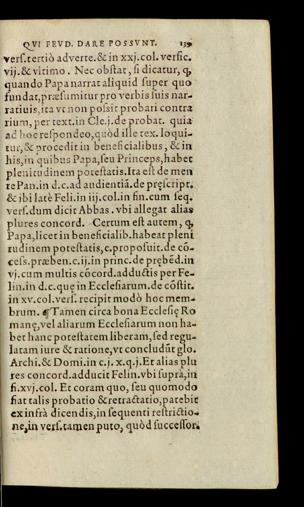 QVI FEVD. DARE POSSVNT. 139
vers. tertiò aduerte. & in xxj. col. versic.
vij. & vltimo. Nec obstat, si dicatur, q,
quando Papa narrat aliquid super quo
fundat, præsumitur pro verbis suis nar-
ratiuis, ita vt non possit probari contra
rium, per text. in Cle. j. de probat. quia
ad hoc respondeo, quòd ille tex. loqui-
tur, & procedit in beneficialibus, & in
his, in quibus Papa, seu Princeps, habet
plenitudinem potestatis. Ita est de men
te Pan. in d. c. ad audientiã. de pręscript.
& ibi latè Feli. in iij. col. in fin. cum seq.
vers. dum dicit Abbas. vbi allegat alias
plures concord. Certum est autem, q,
Papa, licet in beneficialib. habeat pleni
tudinem potestatis, c. proposuit. de cõ-
cess. præben. c. ij. in princ. de prębẽd. in
vj. cum multis cõcord. adductis per Fe-
lin. in d. c. quę in Ecclesiarum. de cõstit.
in xv. col. vers. recipit modò hoc mem-
brum. ¶ Tamen circa bona Ecclesię Ro
manę, vel aliarum Ecclesiarum non ha-
bet hanc potestatem liberam, sed regu-
latam iure & ratione, vt concludũt glo.
Archi. & Domi. in c. j. x. q. j. Et alias plu
res concord. adducit Felin. vbi suprà, in
fi. xvj. col. Et coram quo, seu quomodo
fiat talis probatio & retractatio, patebit
ex infrà dicendis, in sequenti restrictio-
ne, in vers. tamen puto, quòd successor.